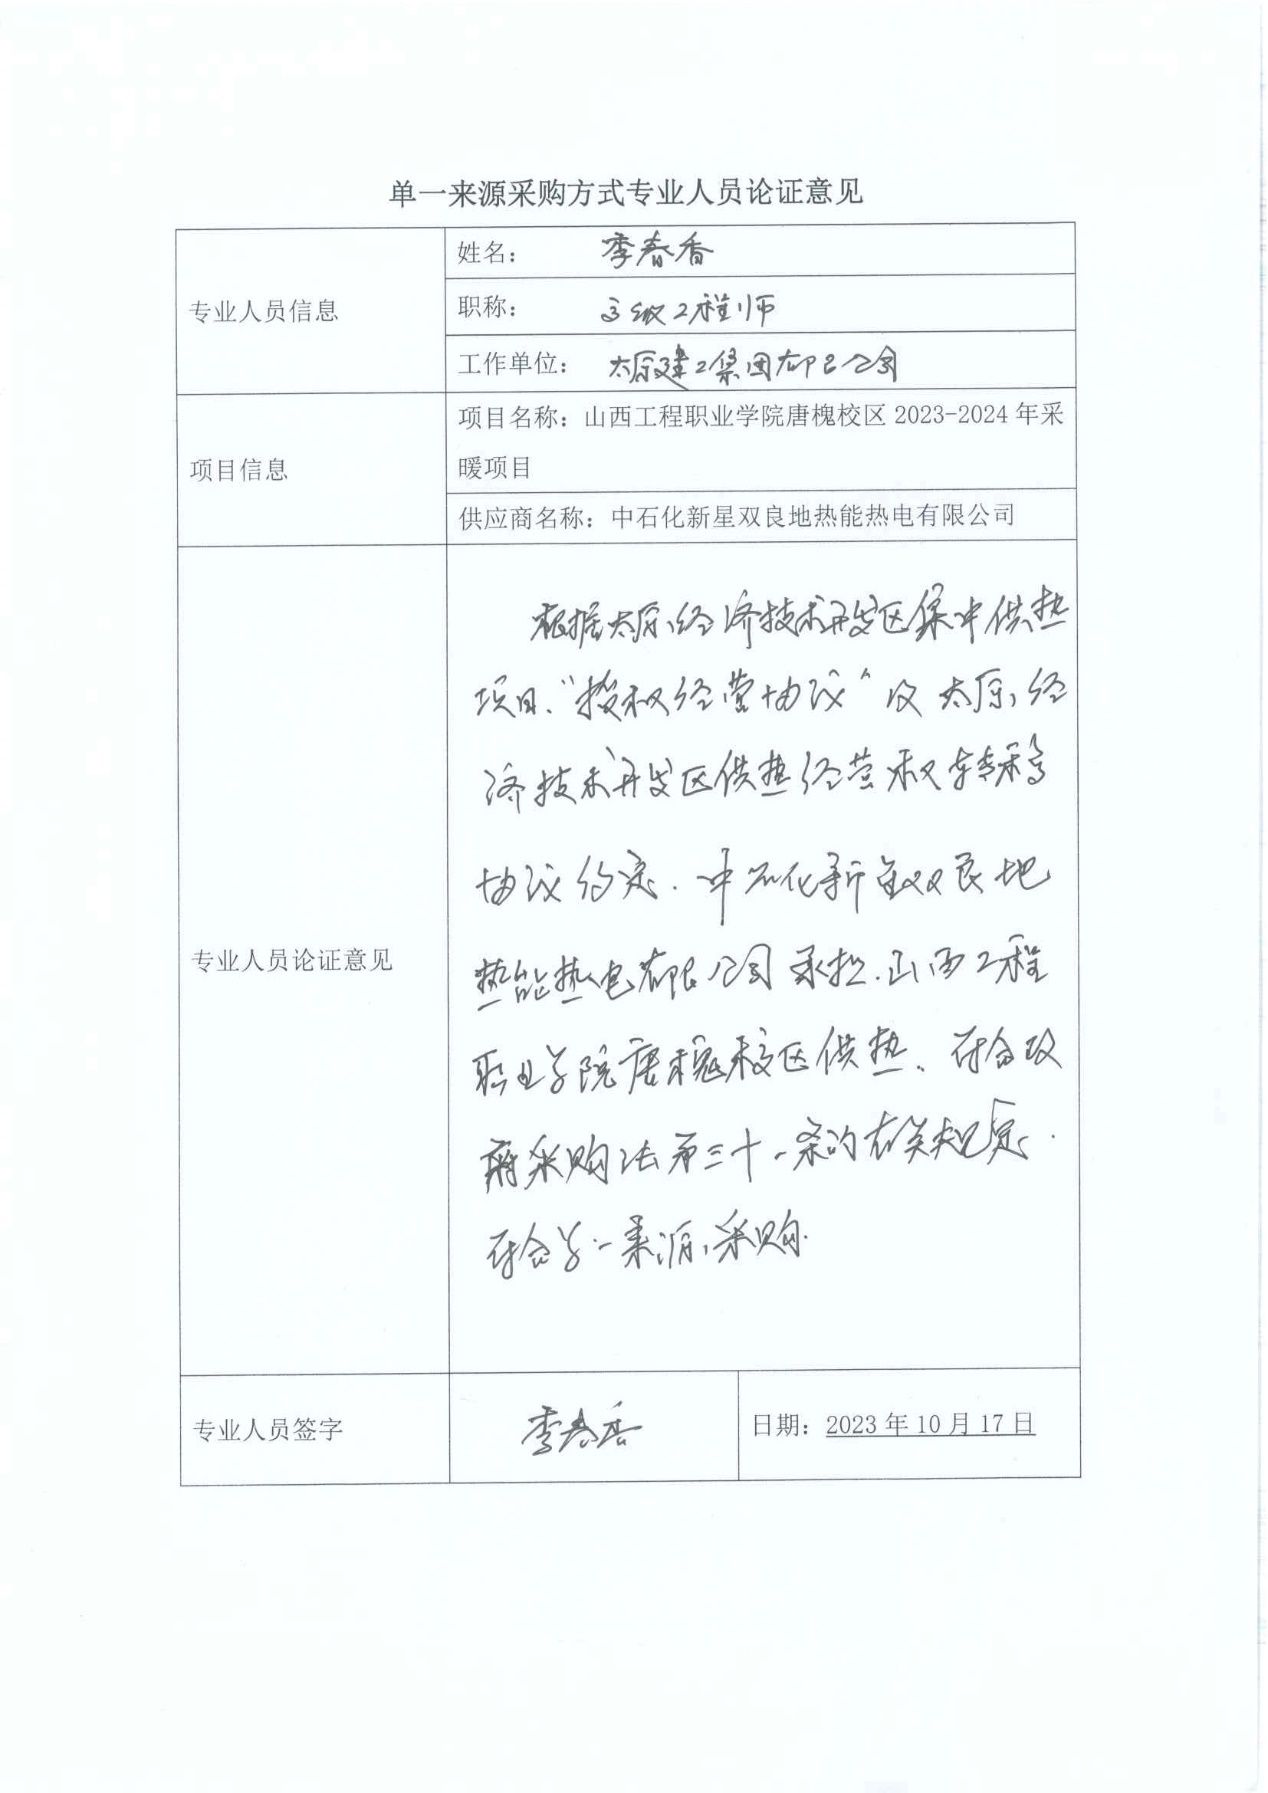 单一来源采购方式专业人员论证意见
专业人员信息
姓名： 李春香
职称： 高级工程师
工作单位： 太原建工集团有限公司
项目信息
项目名称：山西工程职业学院唐槐校区 2023-2024 年采
暖项目
供应商名称：中石化新星双良地热能热电有限公司
专业人员论证意见
根据太原经济技术开发区集中供热
项目、“授权经营协议”及太原经
济技术开发区供热经营权转移
协议约定.中石化新星双良地
热能热电有限公司承担.山西工程
职业学院唐槐校区供热、符合政
府采购法第三十一条的有关规定.
符合单一来源采购.
专业人员签字
李春香
日期：2023 年 10 月 17 日